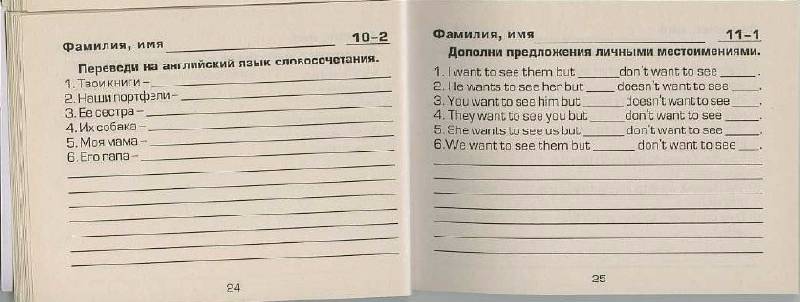 Фамилия, имя 10-2
Переведи на английский язык словосочетания.
1. Твои книги –
2. Наши портфели –
3. Ее сестра –
4. Их собака –
5. Моя мама –
6. Его папа –
24
Фамилия, имя 11-1
Дополни предложения личными местоимениями.
1. I want to see them but ______ don't want to see _____.
2. He wants to see her but _____ doesn't want to see _____.
3. You want to see him but ______ doesn't want to see ____.
4. They want to see you but _____ don't want to see _____.
5. She wants to see us but _____ don't want to see _____.
6. We want to see them but ______ don't want to see ___.
25